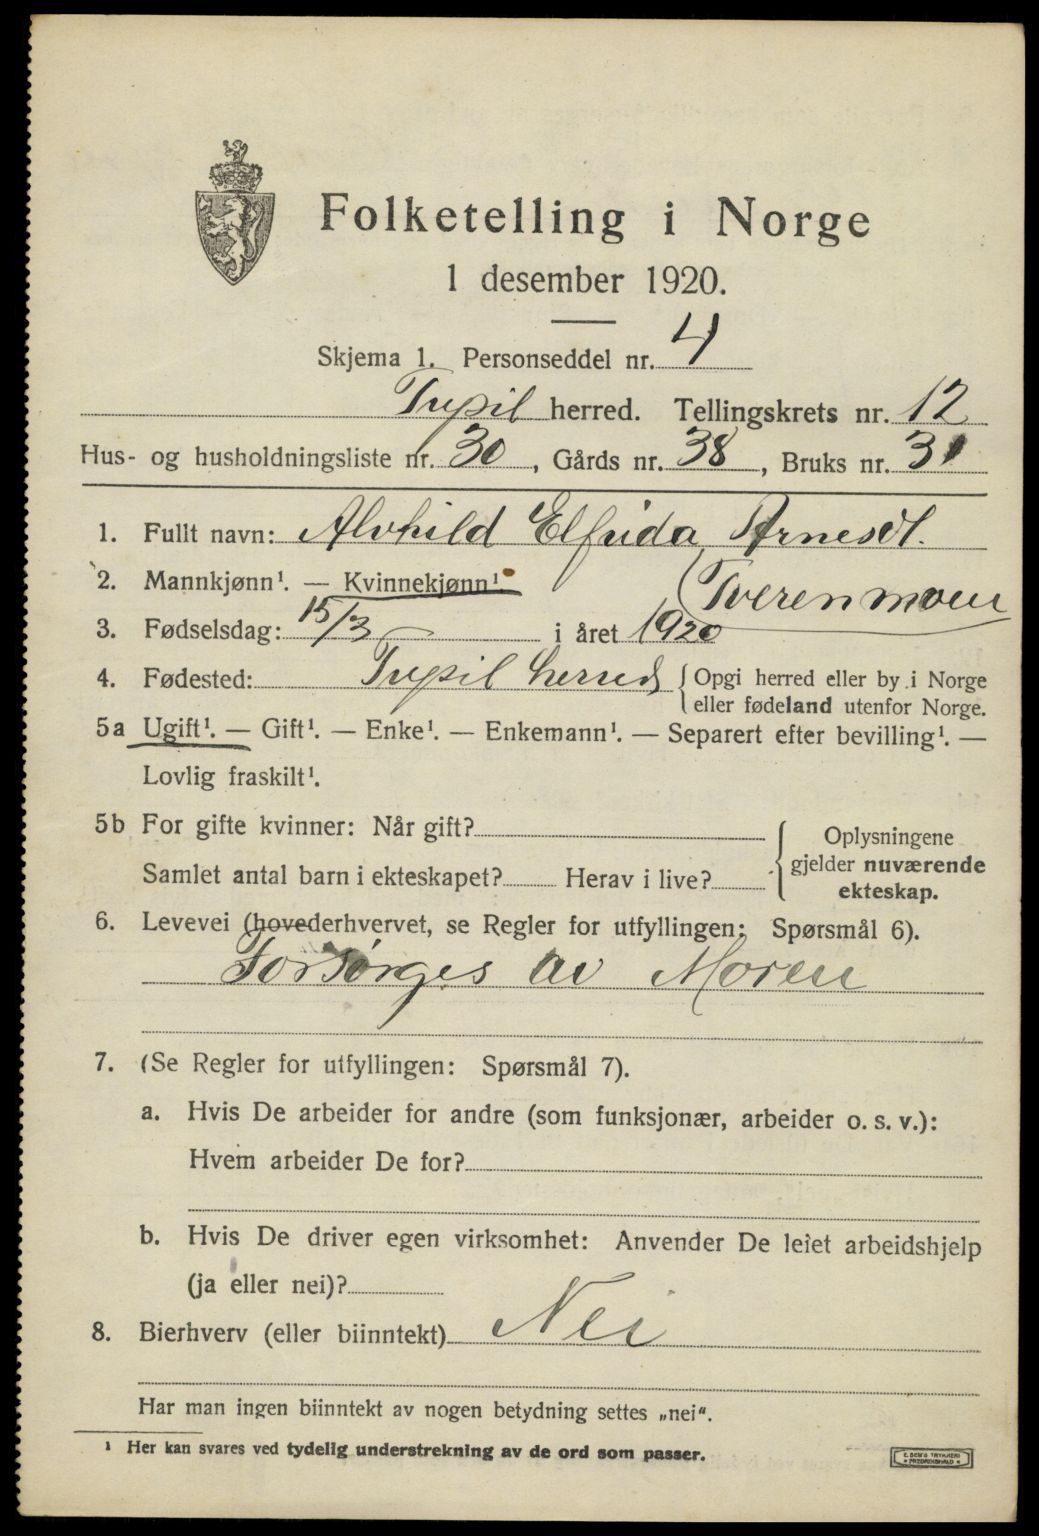 Folketelling i Norge
1 desember 1920.
Skjema 1. Personseddel nr. 4
Trysil herred. Tellingskrets nr. 12
Hus- og husholdningsliste nr. 30, Gårds nr. 38, Bruks nr. 31
1. Fullt navn: Alvhild Elfrida Arnesdt.
2. Mannkjønn¹. — Kvinnekjønn¹ (Tverenmoen
3. Fødselsdag: 15/3 i året 1920
4. Fødested: Trysil herred { Opgi herred eller by i Norge
eller fødeland utenfor Norge.
5a Ugift¹. — Gift¹. — Enke¹. — Enkemann¹. — Separert efter bevilling¹. —
Lovlig fraskilt¹.
5b For gifte kvinner: Når gift? { Oplysningene
gjelder nuværende
Samlet antal barn i ekteskapet? Herav i live? ekteskap.
6. Levevei (hovederhvervet, se Regler for utfyllingen: Spørsmål 6).
Forsørges av Moren
7. (Se Regler for utfyllingen: Spørsmål 7).
a. Hvis De arbeider for andre (som funksjonær, arbeider o. s. v.):
Hvem arbeider De for?
b. Hvis De driver egen virksomhet: Anvender De leiet arbeidshjelp
(ja eller nei)?
8. Bierhverv (eller biinntekt) Nei
Har man ingen biinntekt av nogen betydning settes „nei".
¹ Her kan svares ved tydelig understrekning av de ord som passer.
E. SEM'S TRYKKERI
* FREDRIKSHALD *